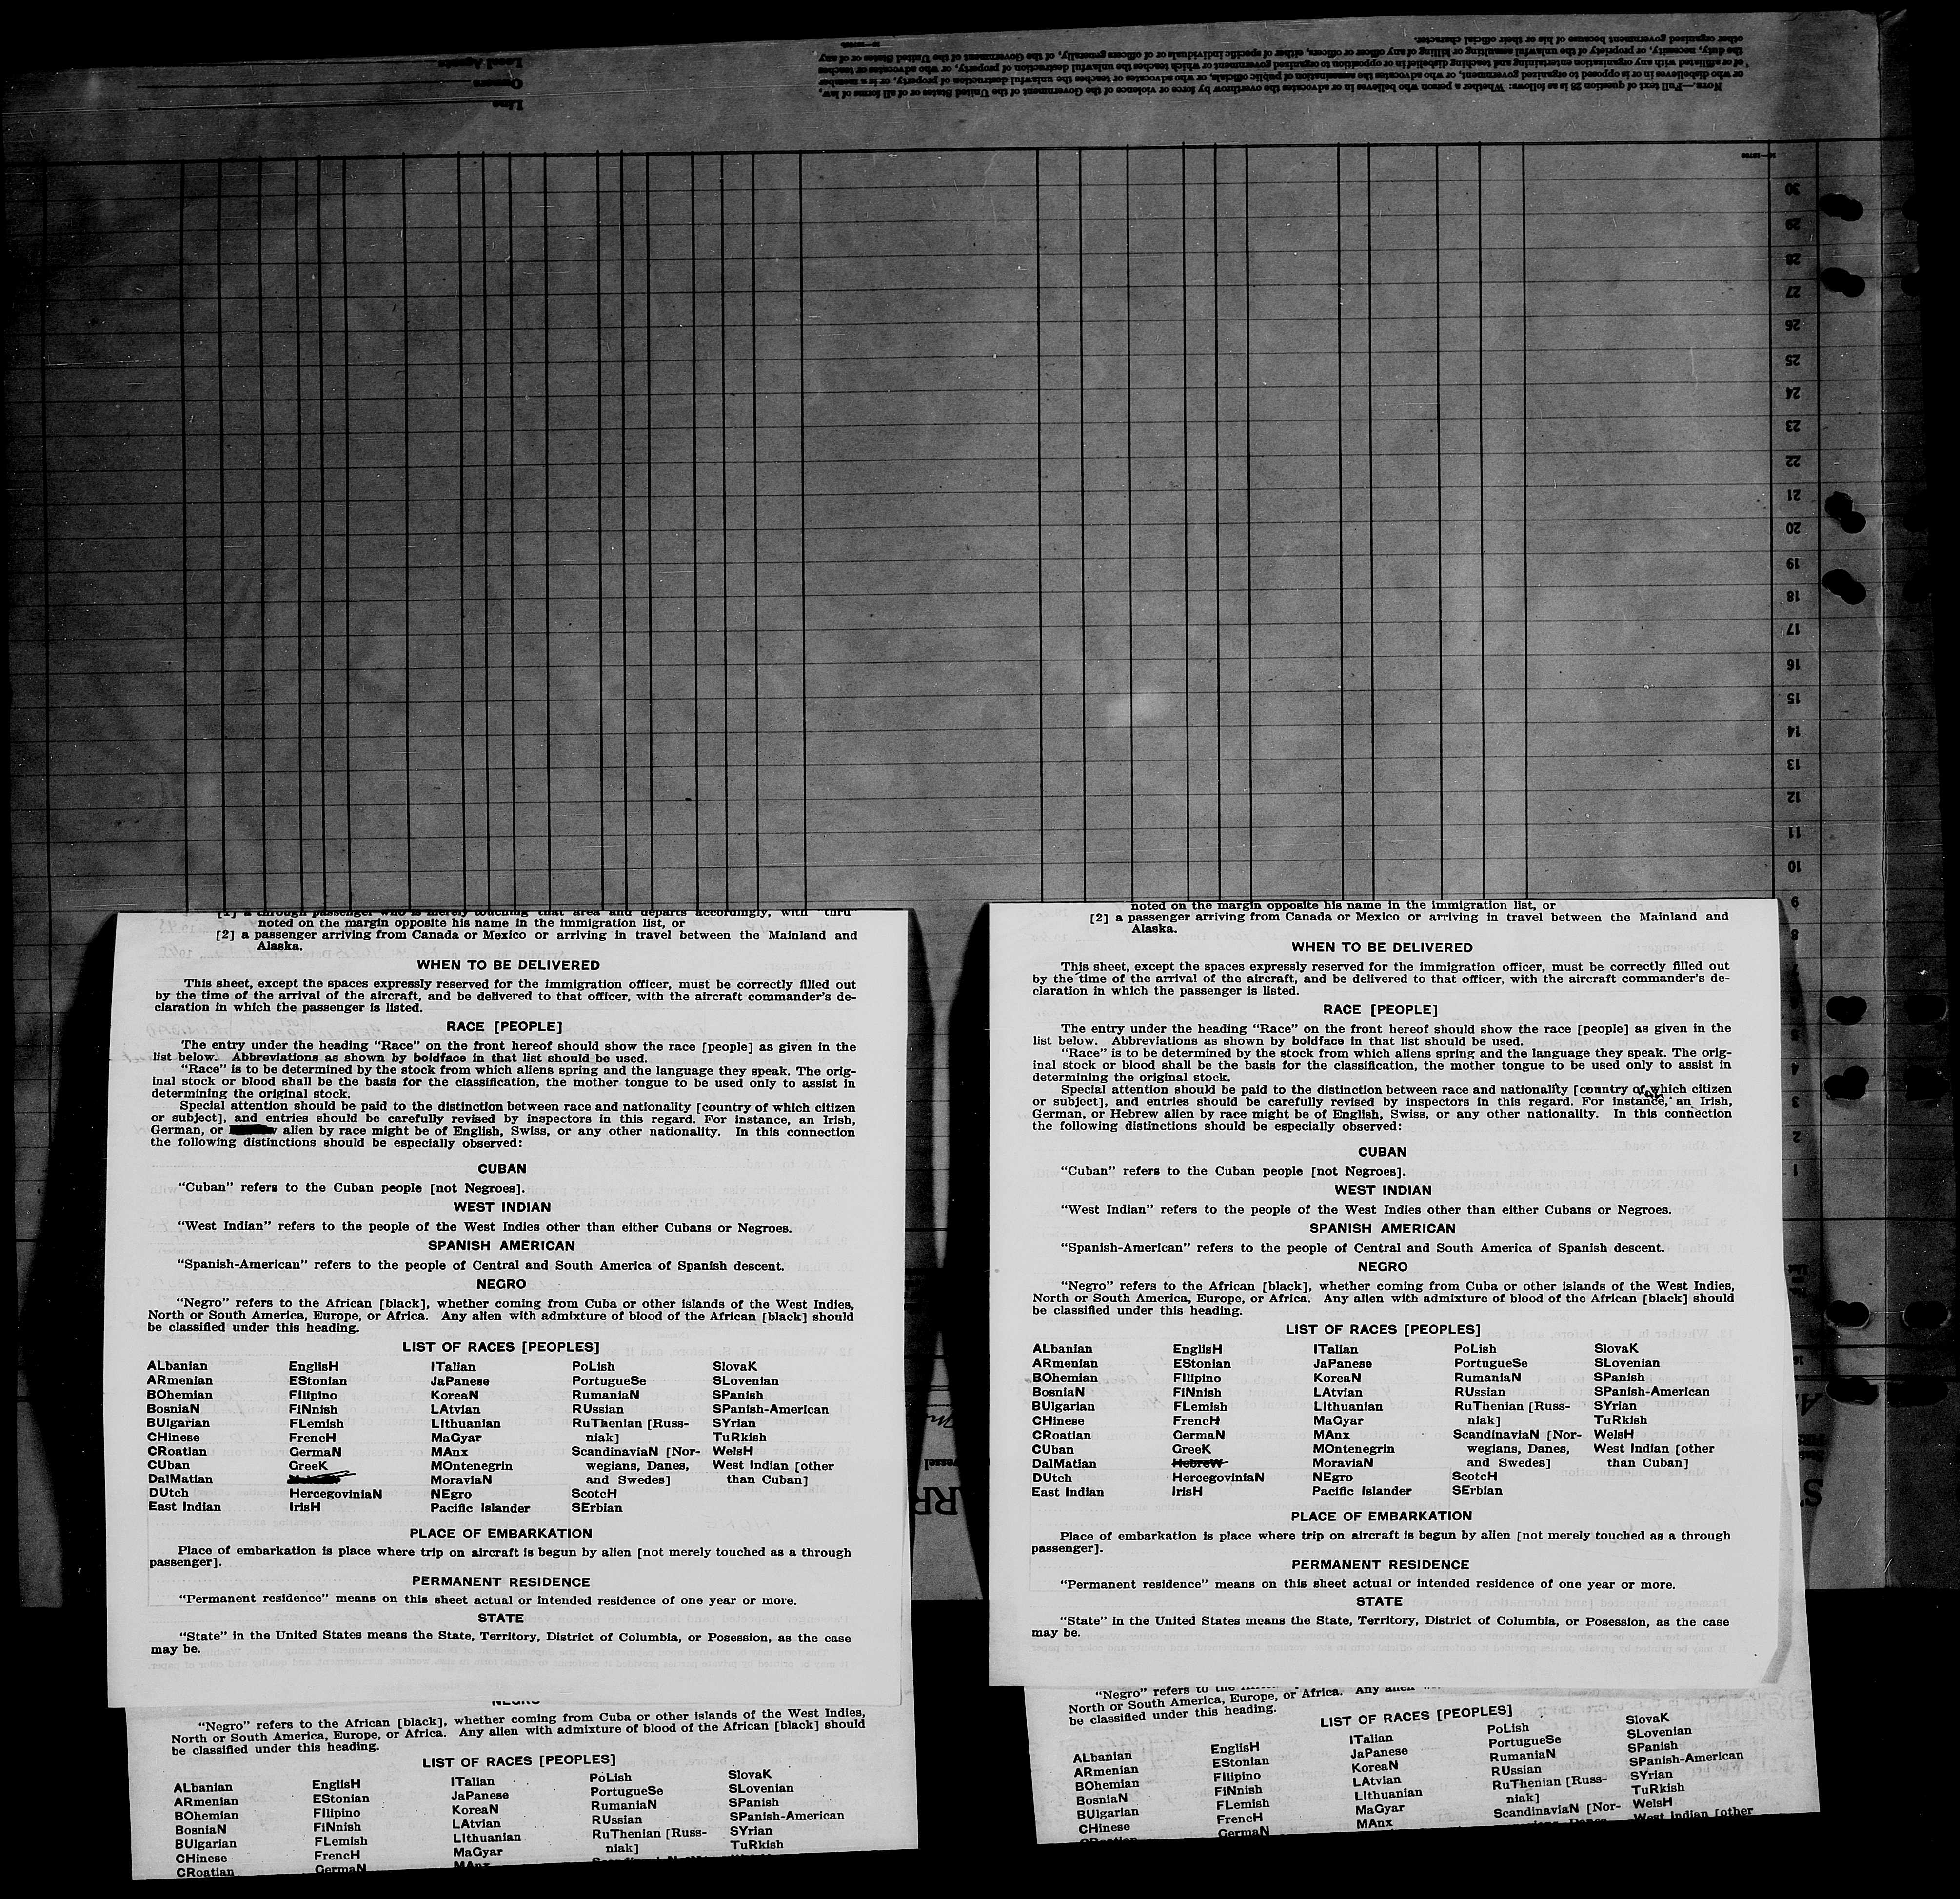 Line
Owners
Local Agents
NOTE.—Full text of question 28 is as follows: Whether a person who believes in or advocates the overthrow by force or violence of the Government of the United States or of all forms of law,
or who disbelieves in or is opposed to organized government, or who advocates the assassination of public officials, or who advocates or teaches the unlawful destruction of property, or is a member
of or affiliated with any organization entertaining and teaching disbelief in or opposition to organized government or which teaches the unlawful destruction of property, or who advocates or teaches
the duty, necessity, or propriety of the unlawful assaulting or killing of any officer or officers, either of specific individuals or of officers generally, of the Government of the United States or of any
other organized government because of his or their official character.
30
29
28
27
26
25
24
23
22
21
20
19
18
17
16
15
14
13
12
11
10
9
8
5
4
3
2
1
[1] a through passenger who is merely touching that area and departs accordingly, with "thru
noted on the margin opposite his name in the immigration list, or
[2] a passenger arriving from Canada or Mexico or arriving in travel between the Mainland and
Alaska.
WHEN TO BE DELIVERED
This sheet, except the spaces expressly reserved for the immigration officer, must be correctly filled out
by the time of the arrival of the aircraft, and be delivered to that officer, with the aircraft commander's de-
claration in which the passenger is listed.
RACE [PEOPLE]
The entry under the heading "Race" on the front hereof should show the race [people] as given in the
list below. Abbreviations as shown by boldface in that list should be used.
"Race" is to be determined by the stock from which aliens spring and the language they speak. The orig-
inal stock or blood shall be the basis for the classification, the mother tongue to be used only to assist in
determining the original stock.
Special attention should be paid to the distinction between race and nationality [country of which citizen
or subject], and entries should be carefully revised by inspectors in this regard. For instance, an Irish,
German, or alien by race might be of English, Swiss, or any other nationality. In this connection
the following distinctions should be especially observed:
CUBAN
"Cuban" refers to the Cuban people [not Negroes].
WEST INDIAN
"West Indian" refers to the people of the West Indies other than either Cubans or Negroes.
SPANISH AMERICAN
"Spanish-American" refers to the people of Central and South America of Spanish descent.
NEGRO
"Negro" refers to the African [black], whether coming from Cuba or other islands of the West Indies,
North or South America, Europe, or Africa. Any alien with admixture of blood of the African [black] should
be classified under this heading.
LIST OF RACES [PEOPLES]
ALbanian EnglisH ITalian PoLish SlovaK
ARmenian EStonian JaPanese PortugueSe SLovenian
BOhemian FIlipino KoreaN RumaniaN SPanish
BosniaN FiNnish LAtvian RUssian SPanish-American
BUlgarian FLemish LIthuanian RuThenian [Russ- SYrian
CHinese FrencH MaGyar niak] TuRkish
CRoatian GermaN MAnx ScandinaviaN [Nor- WelsH
CUban GreeK MOntenegrin wegians, Danes, West Indian [other
DalMatian MoraviaN and Swedes] than Cuban]
DUtch HercegoviniaN NEgro ScotcH
East Indian IrisH Pacific Islander SErbian
PLACE OF EMBARKATION
Place of embarkation is place where trip on aircraft is begun by alien [not merely touched as a through
passenger].
PERMANENT RESIDENCE
"Permanent residence" means on this sheet actual or intended residence of one year or more.
STATE
"State" in the United States means the State, Territory, District of Columbia, or Posession, as the case
may be.
NEGRO
"Negro" refers to the African [black], whether coming from Cuba or other islands of the West Indies,
North or South America, Europe, or Africa. Any alien with admixture of blood of the African [black] should
be classified under this heading.
LIST OF RACES [PEOPLES]
ALbanian EnglisH ITalian PoLish SlovaK
ARmenian EStonian JaPanese PortugueSe SLovenian
BOhemian FIlipino KoreaN RumaniaN SPanish
BosniaN FiNnish LAtvian RUssian SPanish-American
BUlgarian FLemish LIthuanian RuThenian [Russ- SYrian
CHinese FrencH MaGyar niak] TuRkish
CRoatian GermaN MAnx
noted on the margin opposite his name in the immigration list, or
[2] a passenger arriving from Canada or Mexico or arriving in travel between the Mainland and
Alaska.
WHEN TO BE DELIVERED
This sheet, except the spaces expressly reserved for the immigration officer, must be correctly filled out
by the time of the arrival of the aircraft, and be delivered to that officer, with the aircraft commander's de-
claration in which the passenger is listed.
RACE [PEOPLE]
The entry under the heading "Race" on the front hereof should show the race [people] as given in the
list below. Abbreviations as shown by boldface in that list should be used.
"Race" is to be determined by the stock from which aliens spring and the language they speak. The orig-
inal stock or blood shall be the basis for the classification, the mother tongue to be used only to assist in
determining the original stock.
Special attention should be paid to the distinction between race and nationality [country of which citizen
or subject], and entries should be carefully revised by inspectors in this regard. For instance, an Irish,
German, or Hebrew alien by race might be of English, Swiss, or any other nationality. In this connection
the following distinctions should be especially observed:
CUBAN
"Cuban" refers to the Cuban people [not Negroes].
WEST INDIAN
"West Indian" refers to the people of the West Indies other than either Cubans or Negroes.
SPANISH AMERICAN
"Spanish-American" refers to the people of Central and South America of Spanish descent.
NEGRO
"Negro" refers to the African [black], whether coming from Cuba or other islands of the West Indies,
North or South America, Europe, or Africa. Any alien with admixture of blood of the African [black] should
be classified under this heading.
LIST OF RACES [PEOPLES]
ALbanian EnglisH ITalian PoLish SlovaK
ARmenian EStonian JaPanese PortugueSe SLovenian
BOhemian FIlipino KoreaN RumaniaN SPanish
BosniaN FiNnish LAtvian RUssian SPanish-American
BUlgarian FLemish LIthuanian RuThenian [Russ- SYrian
CHinese FrencH MaGyar niak] TuRkish
CRoatian GermaN MAnx ScandinaviaN [Nor- WelsH
CUban GreeK MOntenegrin wegians, Danes, West Indian [other
DalMatian HebreW MoraviaN and Swedes] than Cuban]
DUtch HercegoviniaN NEgro ScotcH
East Indian IrisH Pacific Islander SErbian
PLACE OF EMBARKATION
Place of embarkation is place where trip on aircraft is begun by alien [not merely touched as a through
passenger].
PERMANENT RESIDENCE
"Permanent residence" means on this sheet actual or intended residence of one year or more.
STATE
"State" in the United States means the State, Territory, District of Columbia, or Posession, as the case
may be.
"Negro" refers to the
North or South America, Europe, or Africa. Any alien
be classified under this heading.
LIST OF RACES [PEOPLES]
ALbanian EnglisH ITalian PoLish SlovaK
ARmenian EStonian JaPanese PortugueSe SLovenian
BOhemian FIlipino KoreaN RumaniaN SPanish
BosniaN FiNnish LAtvian RUssian SPanish-American
BUlgarian FLemish LIthuanian RuThenian [Russ- SYrian
CHinese FrencH MaGyar niak] TuRkish
CRoatian GermaN MAnx ScandinaviaN [Nor- WelsH
West Indian [other